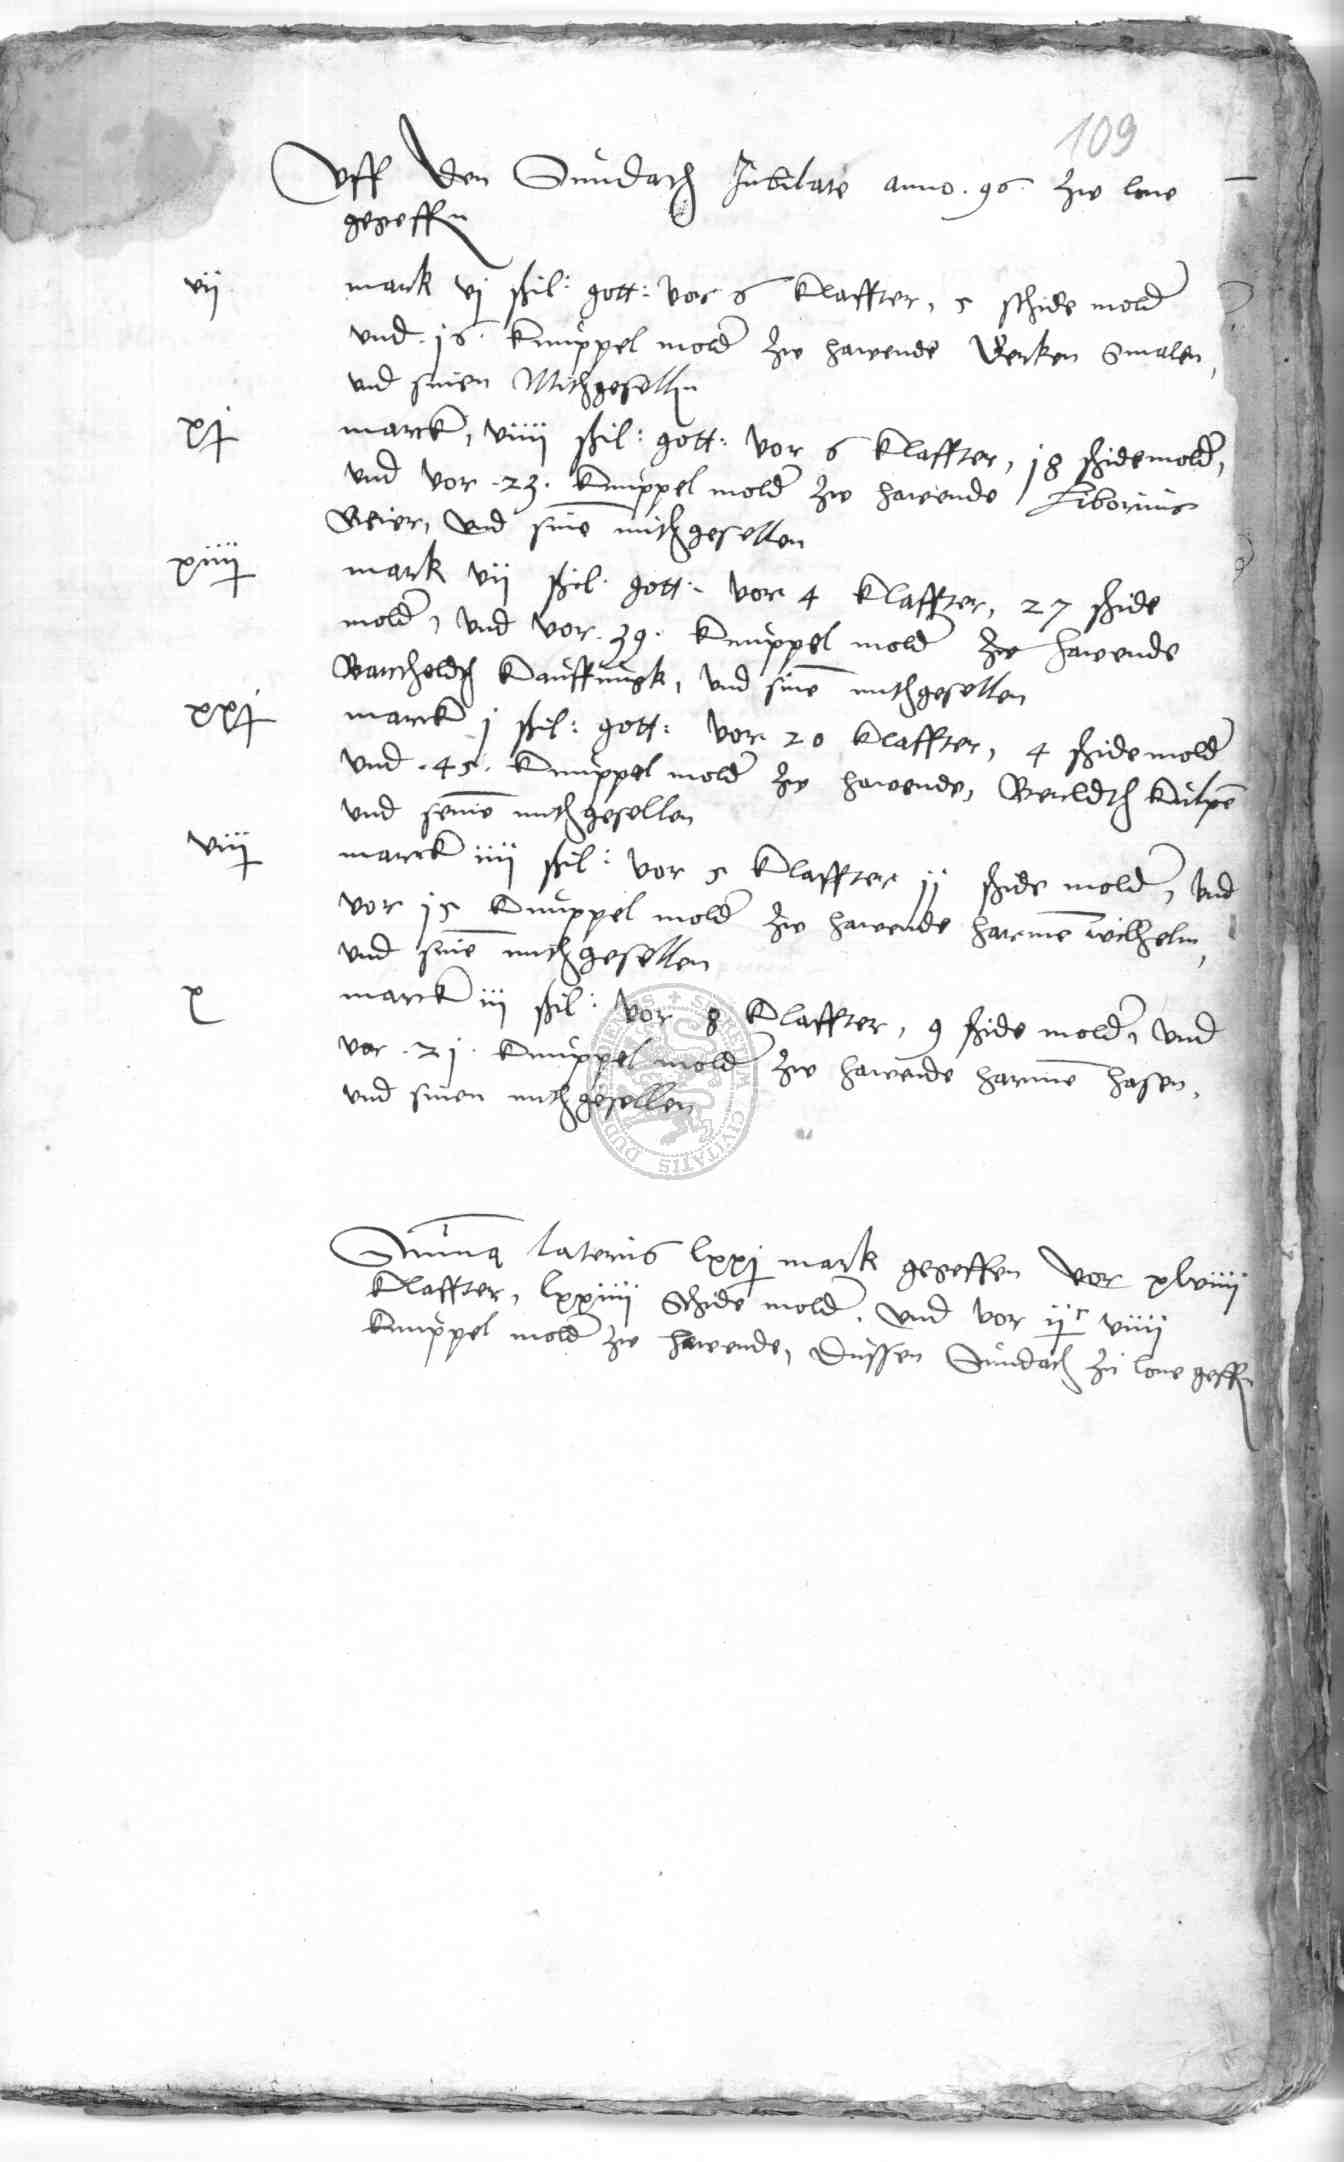 109
Uff den Sundach Jubilate anno . 96 . zw lone
gegeffn
vii mark vj schil: gott: vor 6 klaffter, 5 schide mold
und . 16 . knuppel mold zw hawende Smalen,
und sinen Mithgeselln
xj marck, viiii schil: gott: vor 6 klaffter, 18 schide mold,
und vor . 23 . knuppel mold zw hawende Liborius
Beier, und sine mithgesellen
xiiii mark vii schil. gott: vor 4 klaffter, 27 schide
mold, und vor . 39 . knuppel mold zw hawende
Bartholdth und sine mithgesellen
xxj marck j schil: gott: vor 20 klaffter, 4 schide mold
und . 45 . knuppel mold zw hawende,
und senne mithgesellen
viij marck iiii schil: vor 5 klaffter jj schide mold, und
vor 15 knuppel mold zw hawende harmne wilhelm,
und sine mithgesellen
x marck iii schil: vor 8 klaffter, 9 schide mold, und
vor . 21 . knuppel mold zw hawende harmne hasen,
und sinen mithgesellen
Summa lateris lxxj mark gegeffen vor xlviiii
klaffter, lxxiiii schide mold. und vor jjc viiii
knuppel mold zw hawende, dussen Sundach zu lone geffn